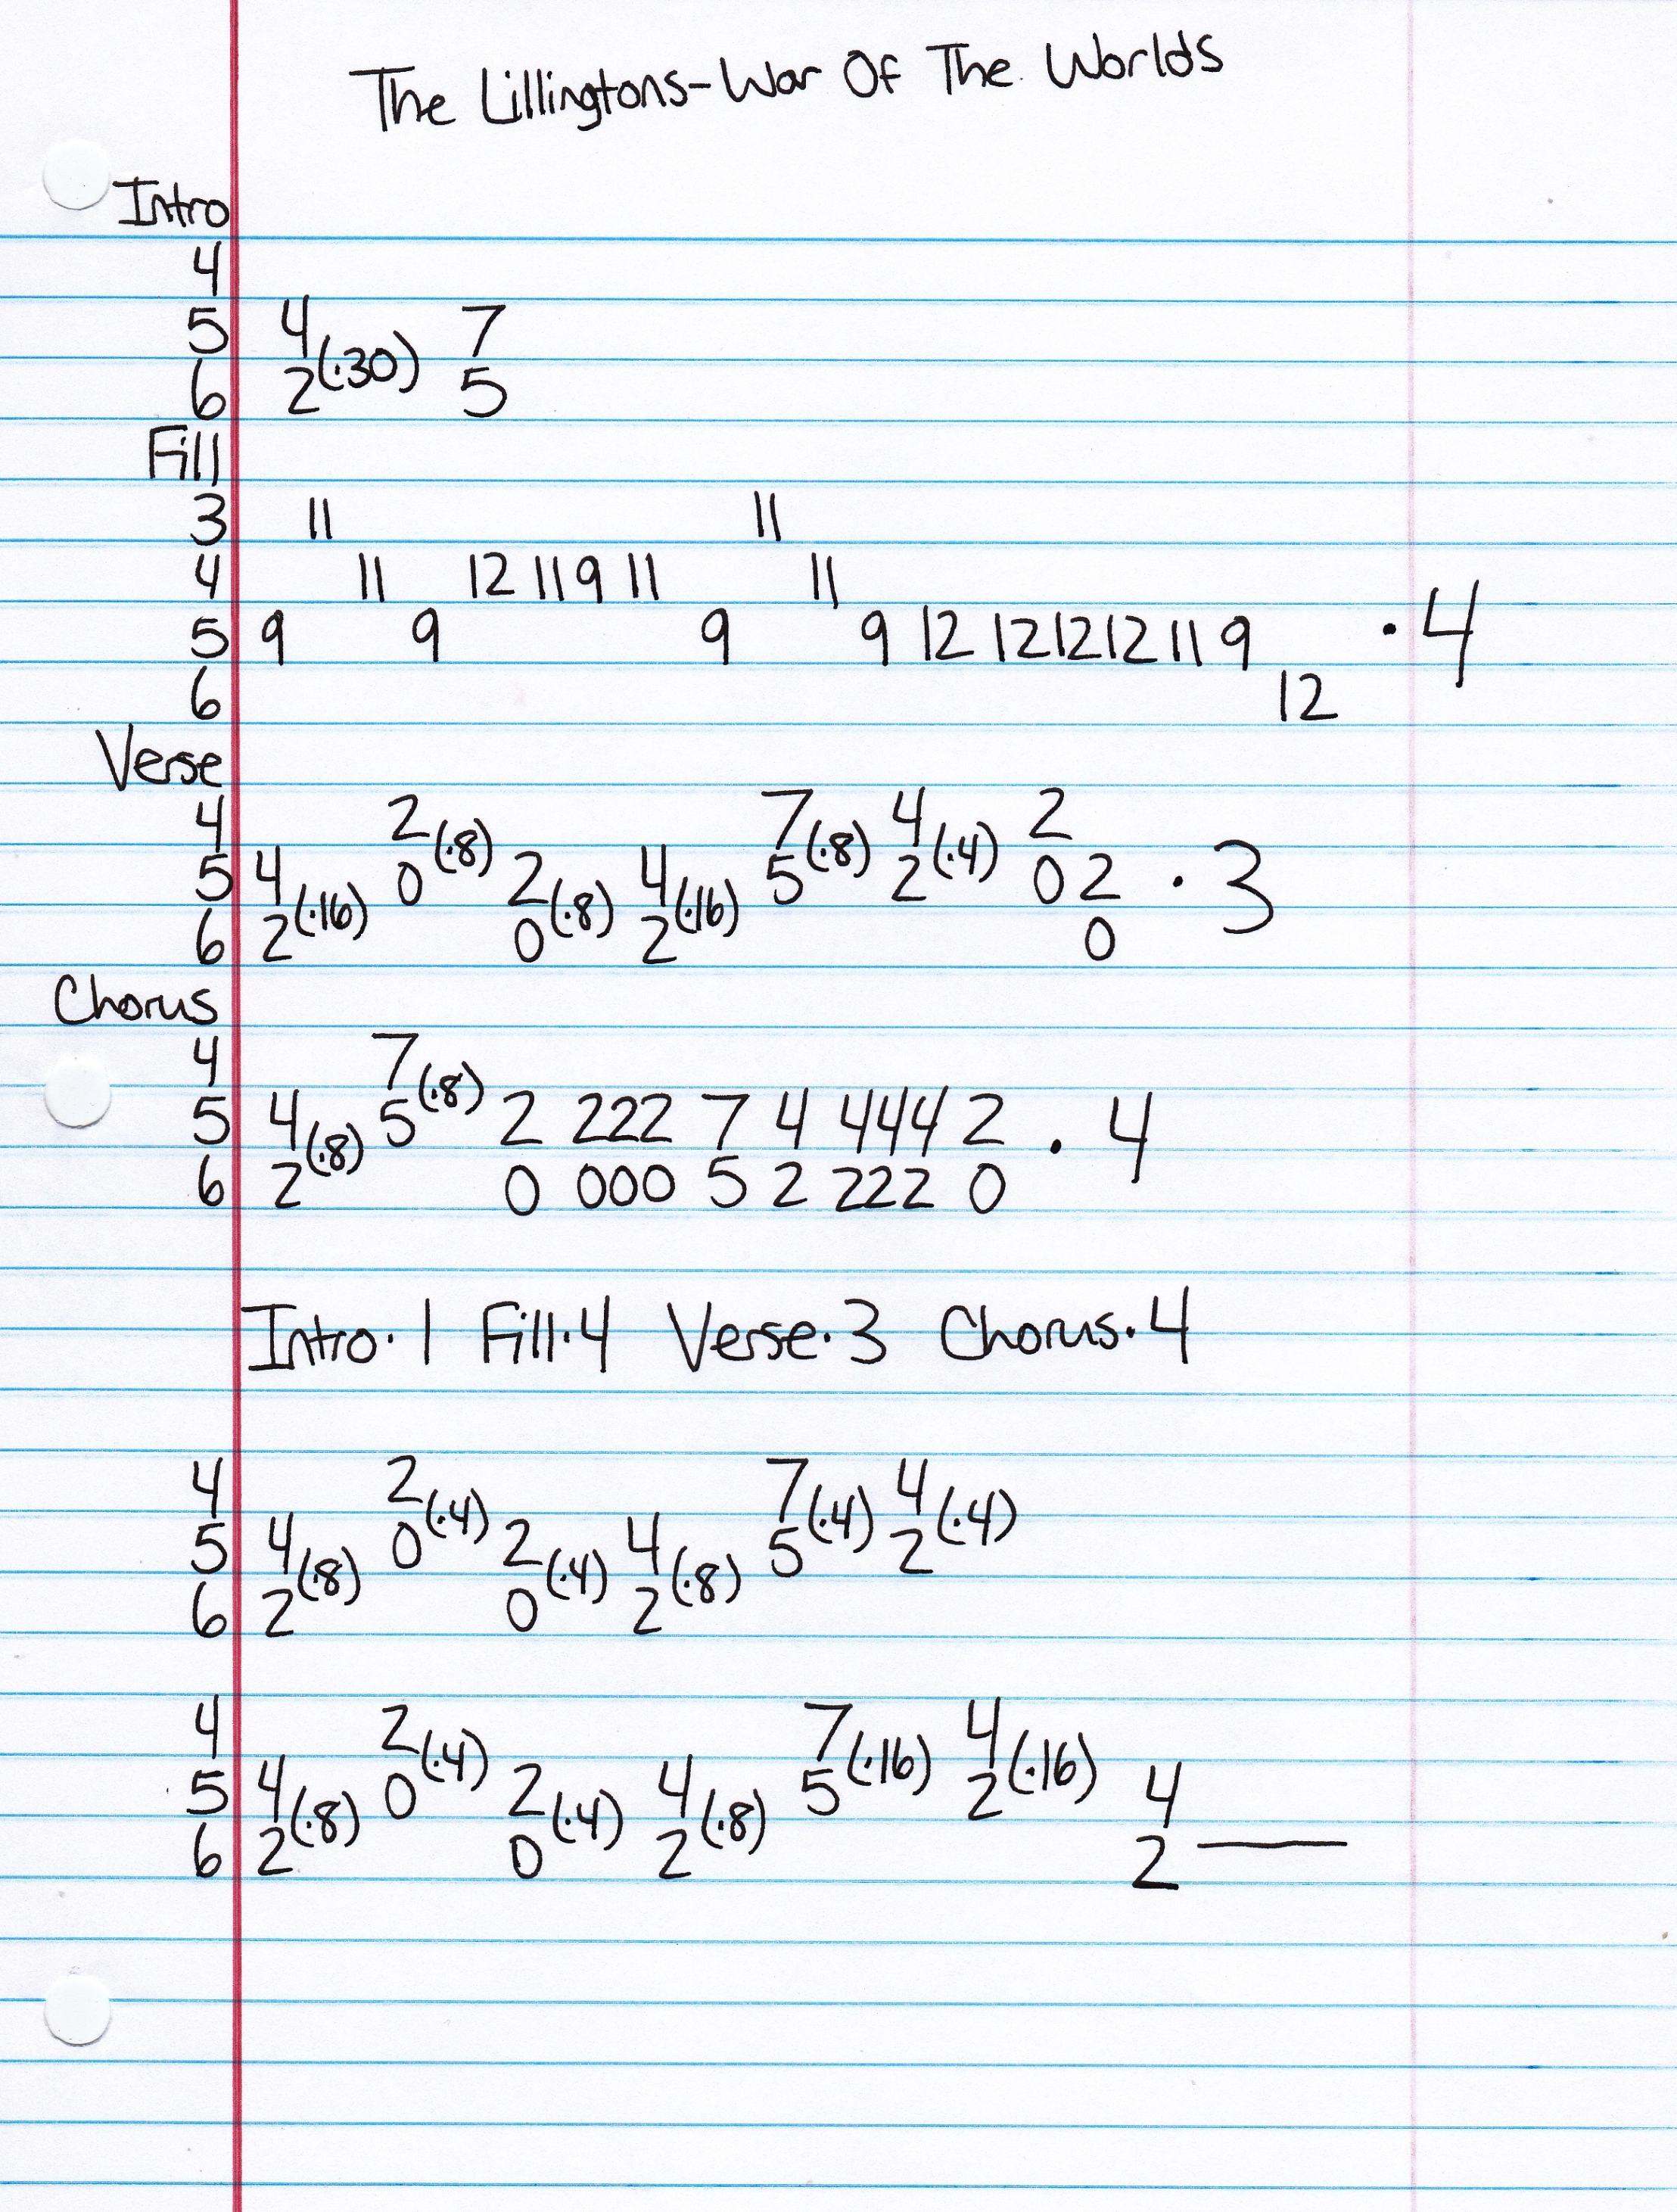 The Lillingtons-War Of The Worlds
Intro
4
5 4 7
6 2(·30) 5
Fill
3 11 11
4 11 12 11 9 11 11
5 9 9 9 9 12 12 12 12 11 9 ·4
6 12
Verse
4 2(·8) 7(·8) 4(·4) 2
5 4 0 2 4 5 2 0 2 ·3
6 2(·16) 0(·8) 2(·16) 0
Chorus
4 7(·8)
5 4 5 2 222 7 4 444 2 · 4
6 2(·8) 0 000 5 2 222 0
Intro·1 Fill·4 Verse·3 Chorus·4
4 2(·4) 7(·4) 4(·4)
5 4 0 2 4 5 2
6 2(·8) 0(·4) 2(·8)
4 2(·4) 7(·16) 4(·16)
5 4 0 2 4 5 2 4
6 2(·8) 0(·4) 2(·8) 2 —